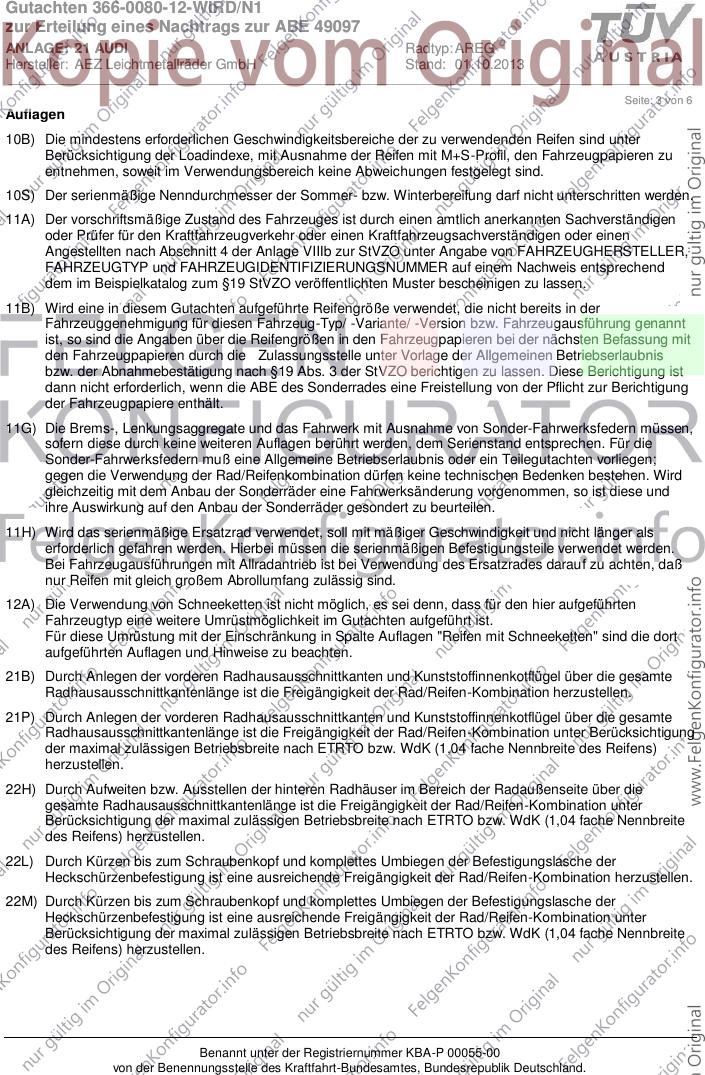 Gutachten 366-0080-12-WIRD/N1
zur Erteilung eines Nachtrags zur ABE 49097
ANLAGE: 21 AUDI
Radtyp: AREG
Hersteller: AEZ Leichtmetallräder GmbH
Stand: 01.10.2013
TÜV
AUSTRIA
Kopie vom Original
Seite: 3 von 6
Auflagen
10B) Die mindestens erforderlichen Geschwindigkeitsbereiche der zu verwendenden Reifen sind unter
Berücksichtigung der Loadindexe, mit Ausnahme der Reifen mit M+S-Profil, den Fahrzeugpapieren zu
entnehmen, soweit im Verwendungsbereich keine Abweichungen festgelegt sind.
10S) Der serienmäßige Nenndurchmesser der Sommer- bzw. Winterbereifung darf nicht unterschritten werden.
11A) Der vorschriftsmäßige Zustand des Fahrzeuges ist durch einen amtlich anerkannten Sachverständigen
oder Prüfer für den Kraftfahrzeugverkehr oder einen Kraftfahrzeugsachverständigen oder einen
Angestellten nach Abschnitt 4 der Anlage VIIIb zur StVZO unter Angabe von FAHRZEUGHERSTELLER,
FAHRZEUGTYP und FAHRZEUGIDENTIFIZIERUNGSNUMMER auf einem Nachweis entsprechend
dem im Beispielkatalog zum §19 StVZO veröffentlichten Muster bescheinigen zu lassen.
11B) Wird eine in diesem Gutachten aufgeführte Reifengröße verwendet, die nicht bereits in der
Fahrzeuggenehmigung für diesen Fahrzeug-Typ/ -Variante/ -Version bzw. Fahrzeugausführung genannt
ist, so sind die Angaben über die Reifengrößen in den Fahrzeugpapieren bei der nächsten Befassung mit
den Fahrzeugpapieren durch die Zulassungsstelle unter Vorlage der Allgemeinen Betriebserlaubnis
bzw. der Abnahmebestätigung nach §19 Abs. 3 der StVZO berichtigen zu lassen. Diese Berichtigung ist
dann nicht erforderlich, wenn die ABE des Sonderrades eine Freistellung von der Pflicht zur Berichtigung
der Fahrzeugpapiere enthält.
11G) Die Brems-, Lenkungsaggregate und das Fahrwerk mit Ausnahme von Sonder-Fahrwerksfedern müssen,
sofern diese durch keine weiteren Auflagen berührt werden, dem Serienstand entsprechen. Für die
Sonder-Fahrwerksfedern muß eine Allgemeine Betriebserlaubnis oder ein Teilegutachten vorliegen;
gegen die Verwendung der Rad/Reifenkombination dürfen keine technischen Bedenken bestehen. Wird
gleichzeitig mit dem Anbau der Sonderräder eine Fahrwerksänderung vorgenommen, so ist diese und
ihre Auswirkung auf den Anbau der Sonderräder gesondert zu beurteilen.
11H) Wird das serienmäßige Ersatzrad verwendet, soll mit mäßiger Geschwindigkeit und nicht länger als
erforderlich gefahren werden. Hierbei müssen die serienmäßigen Befestigungsteile verwendet werden.
Bei Fahrzeugausführungen mit Allradantrieb ist bei Verwendung des Ersatzrades darauf zu achten, daß
nur Reifen mit gleich großem Abrollumfang zulässig sind.
12A) Die Verwendung von Schneeketten ist nicht möglich, es sei denn, dass für den hier aufgeführten
Fahrzeugtyp eine weitere Umrüstmöglichkeit im Gutachten aufgeführt ist.
Für diese Umrüstung mit der Einschränkung in Spalte Auflagen "Reifen mit Schneeketten" sind die dort
aufgeführten Auflagen und Hinweise zu beachten.
21B) Durch Anlegen der vorderen Radhausausschnittkanten und Kunststoffinnenkotflügel über die gesamte
Radhausausschnittkantenlänge ist die Freigängigkeit der Rad/Reifen-Kombination herzustellen.
21P) Durch Anlegen der vorderen Radhausausschnittkanten und Kunststoffinnenkotflügel über die gesamte
Radhausausschnittkantenlänge ist die Freigängigkeit der Rad/Reifen-Kombination unter Berücksichtigung
der maximal zulässigen Betriebsbreite nach ETRTO bzw. WdK (1,04 fache Nennbreite des Reifens)
herzustellen.
22H) Durch Aufweiten bzw. Ausstellen der hinteren Radhäuser im Bereich der Radaußenseite über die
gesamte Radhausausschnittkantenlänge ist die Freigängigkeit der Rad/Reifen-Kombination unter
Berücksichtigung der maximal zulässigen Betriebsbreite nach ETRTO bzw. WdK (1,04 fache Nennbreite
des Reifens) herzustellen.
22L) Durch Kürzen bis zum Schraubenkopf und komplettes Umbiegen der Befestigungslasche der
Heckschürzenbefestigung ist eine ausreichende Freigängigkeit der Rad/Reifen-Kombination herzustellen.
22M) Durch Kürzen bis zum Schraubenkopf und komplettes Umbiegen der Befestigungslasche der
Heckschürzenbefestigung ist eine ausreichende Freigängigkeit der Rad/Reifen-Kombination unter
Berücksichtigung der maximal zulässigen Betriebsbreite nach ETRTO bzw. WdK (1,04 fache Nennbreite
des Reifens) herzustellen.
FELGEN
KONFIGURATOR
FelgenKonfigurator.info
nur gültig im Original
www.FelgenKonfigurator.info
Benannt unter der Registriernummer KBA-P 00055-00
von der Benennungsstelle des Kraftfahrt-Bundesamtes, Bundesrepublik Deutschland.